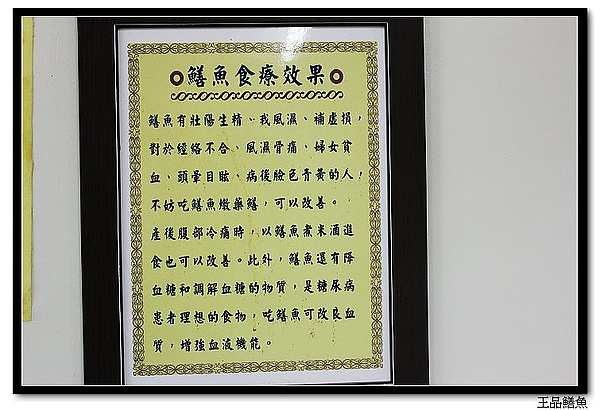 鱔魚食療效果
鱔魚有壯陽生精、我風濕、補虛損，
對於經絡不合、風濕骨痛、婦女貧
血、頭暈目眩、病後臉色青黃的人，
不妨吃鱔魚燉藥鱔，可以改善。
產後腹部冷痛時，以鱔魚煮米酒進
食也可以改善。此外，鱔魚還有降
血糖和調解血糖的物質，是糖尿病
患者理想的食物，吃鱔魚可改良血
質，增強血液機能。
王品鱔魚